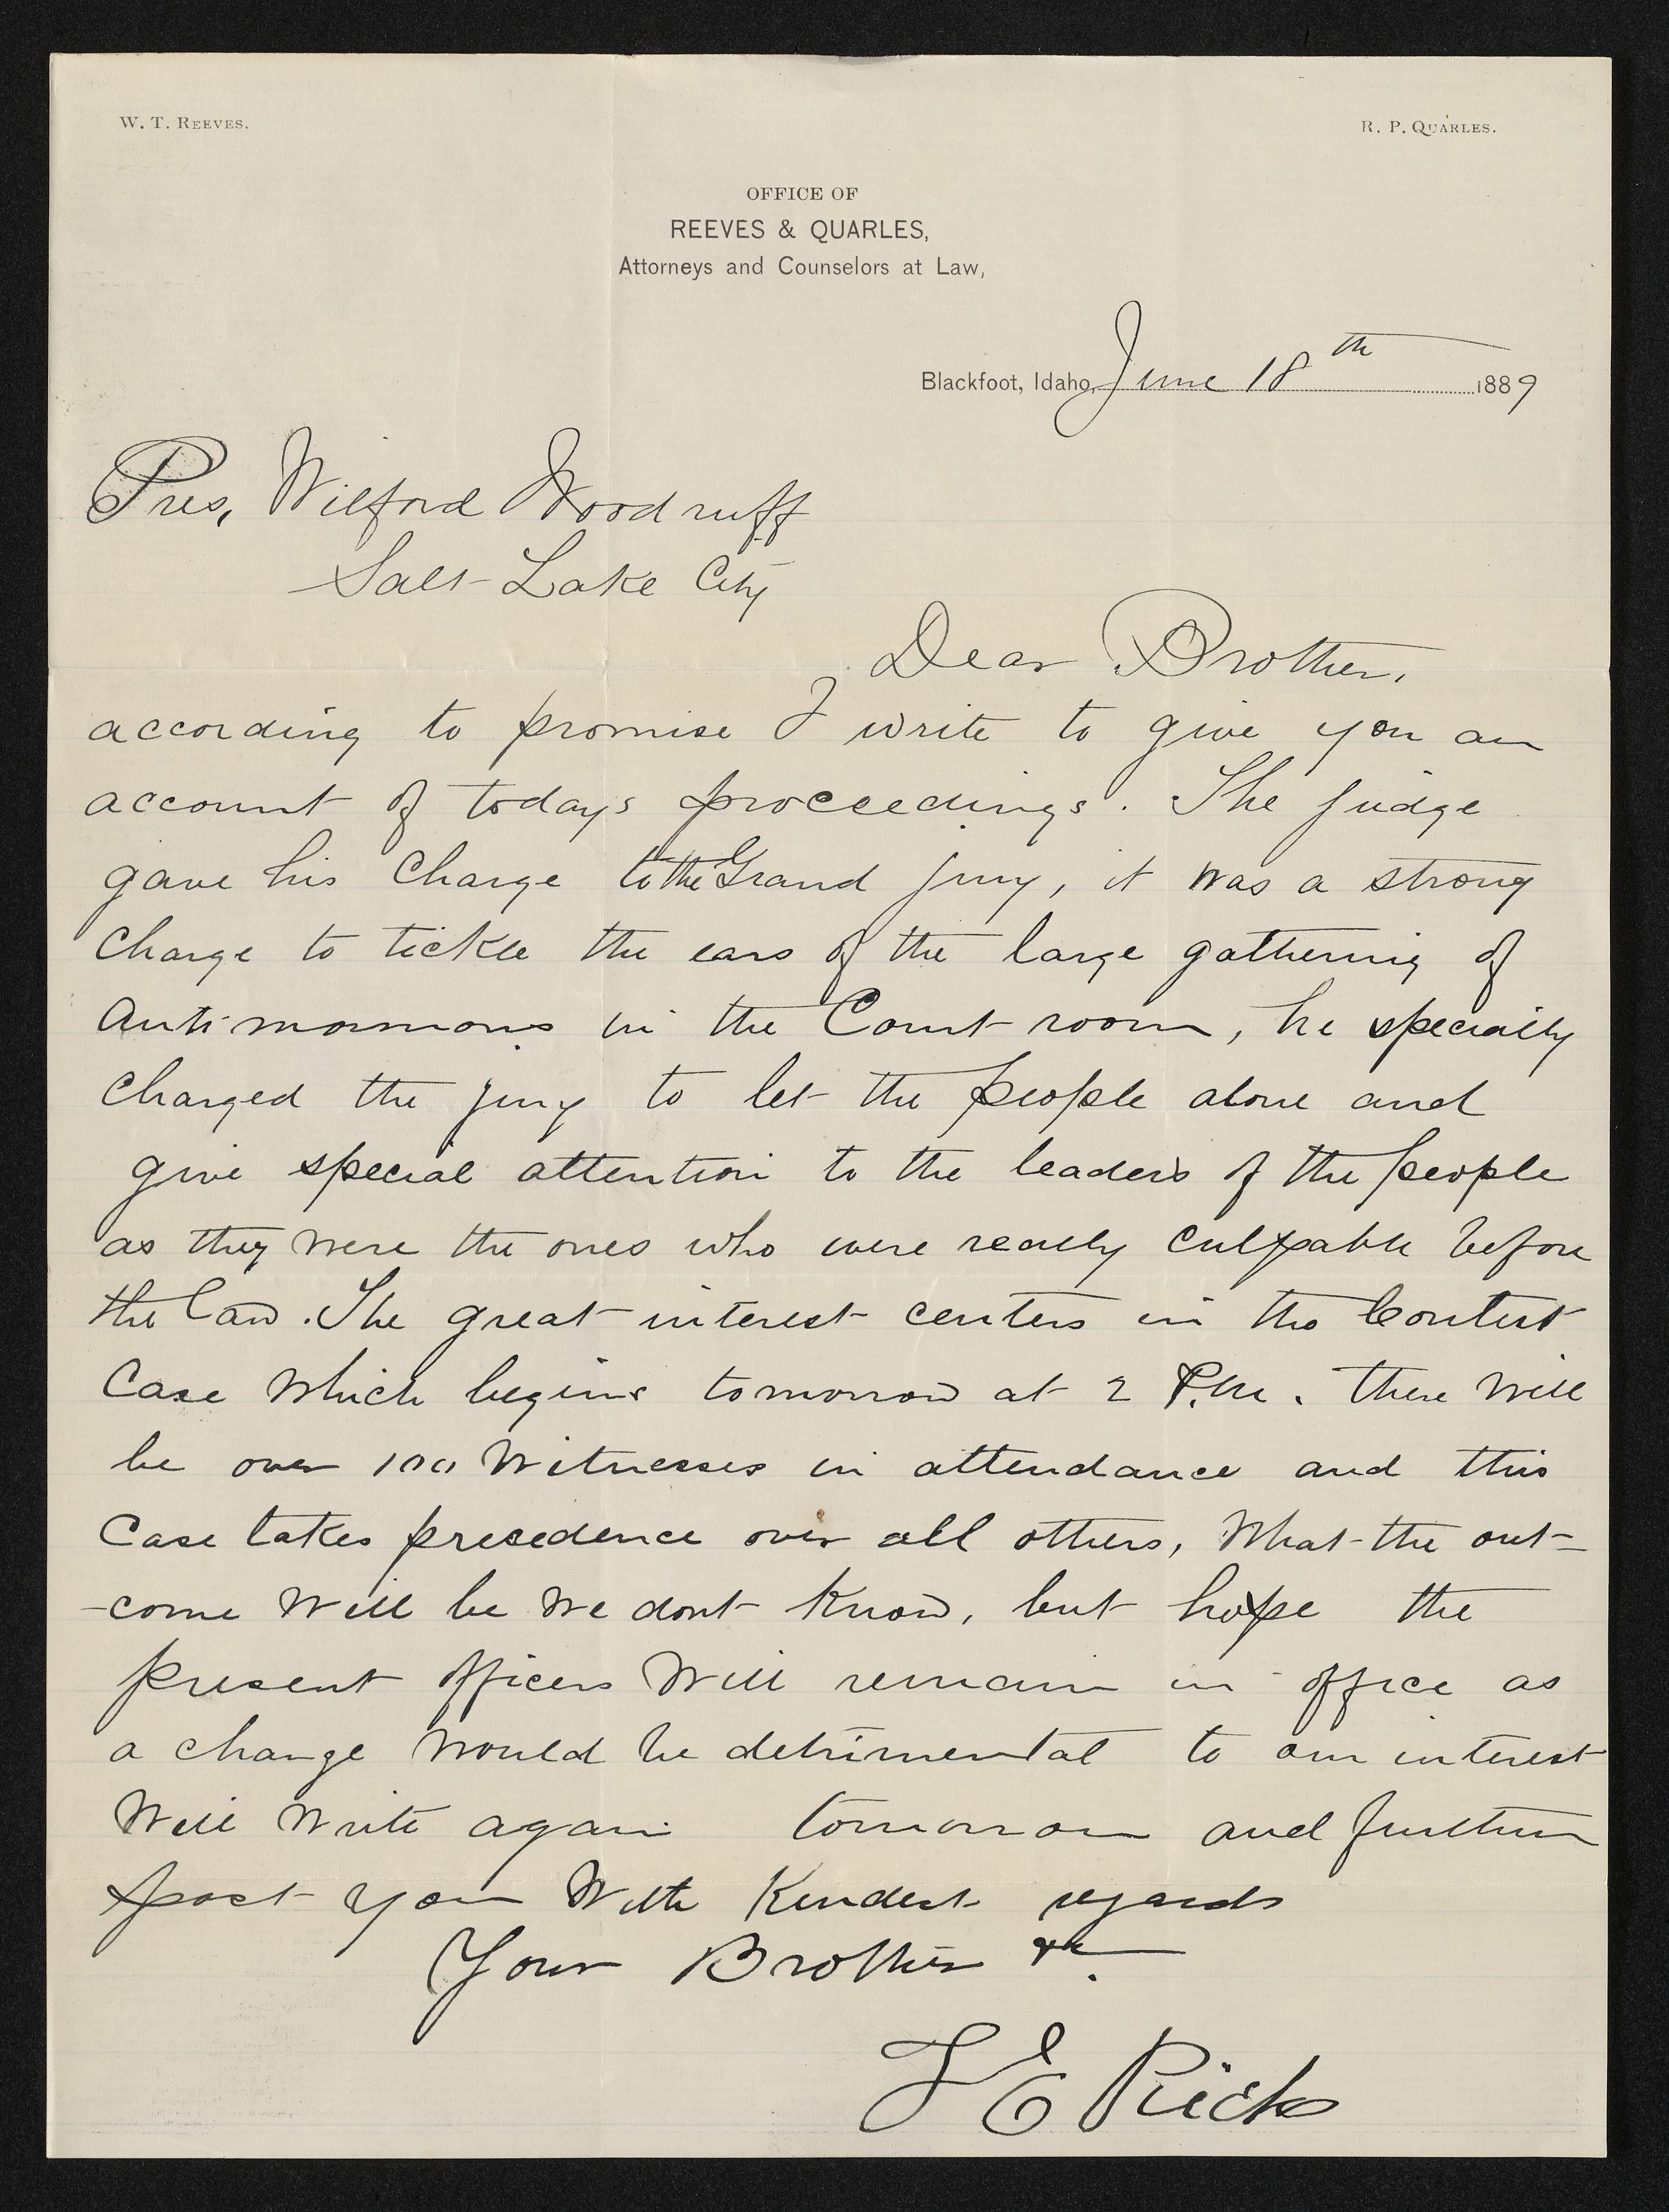 W. T. REEVES.
R. P. QUARLES.
OFFICE OF
REEVES & QUARLES,
Attorneys and Counselors at Law,
Blackfoot, Idaho, June 18th 1889
Pres, Wilford Woodruff
Salt Lake City
Dear Brother,
according to promise I write to give you an
account of todays proceedings. The judge
gave his Charge to the Grand jury, it was a strong
Charge to tickle the ears of the large gathering of
Anti mormons in the Court room, he specially
Charged the jury to let the people alone and
give special attention to the leaders of the people
as they were the ones who were really Culpable before
the law. The great interest centers in the Contest
Case Which begins tomorrow at 2 P.M. there Will
be over 100 Witnesses in attendance and this
Case takes presedence over all others, What the out-
-come Will be We dont Know, but hope the
present officers Will remain in office as
a change Would be detrimental to our interest
Will Write again tomorrow and further
post you With Kindest regards
Your Brother &c.
T E Ricks